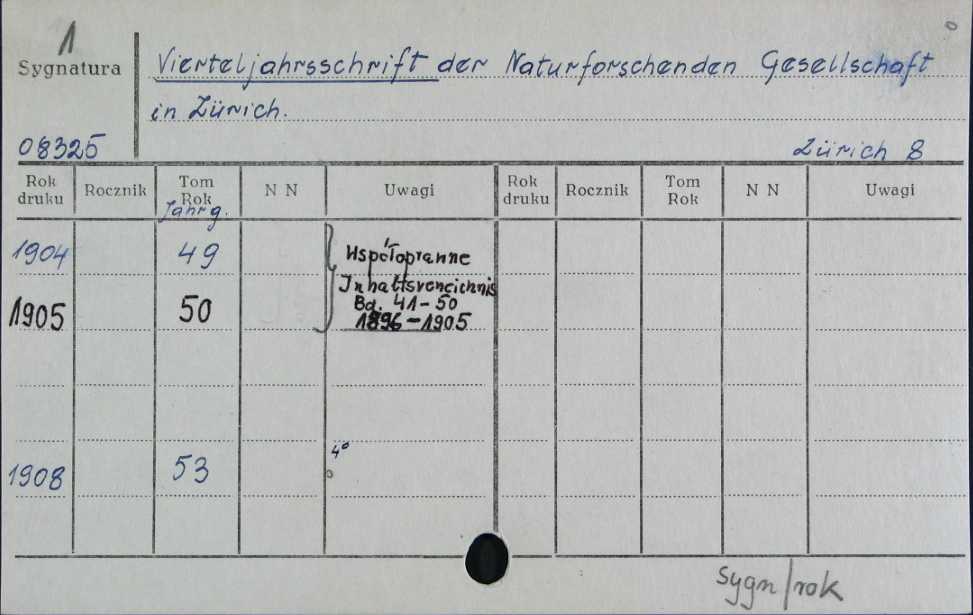 1
Sygnatura
Vierteljahrsschrift der Naturforschenden Gesellschaft
in Zürich.
08325
Zürich 8
Rok druku Rocznik Tom Rok N N Uwagi Rok druku Rocznik Tom Rok N N Uwagi
Jahrg.
1904 49 Współoprawne
Inhaltsverzeichnis
1905 50 Bd. 41-50
1896-1905
4°
1908 53
sygn/rok